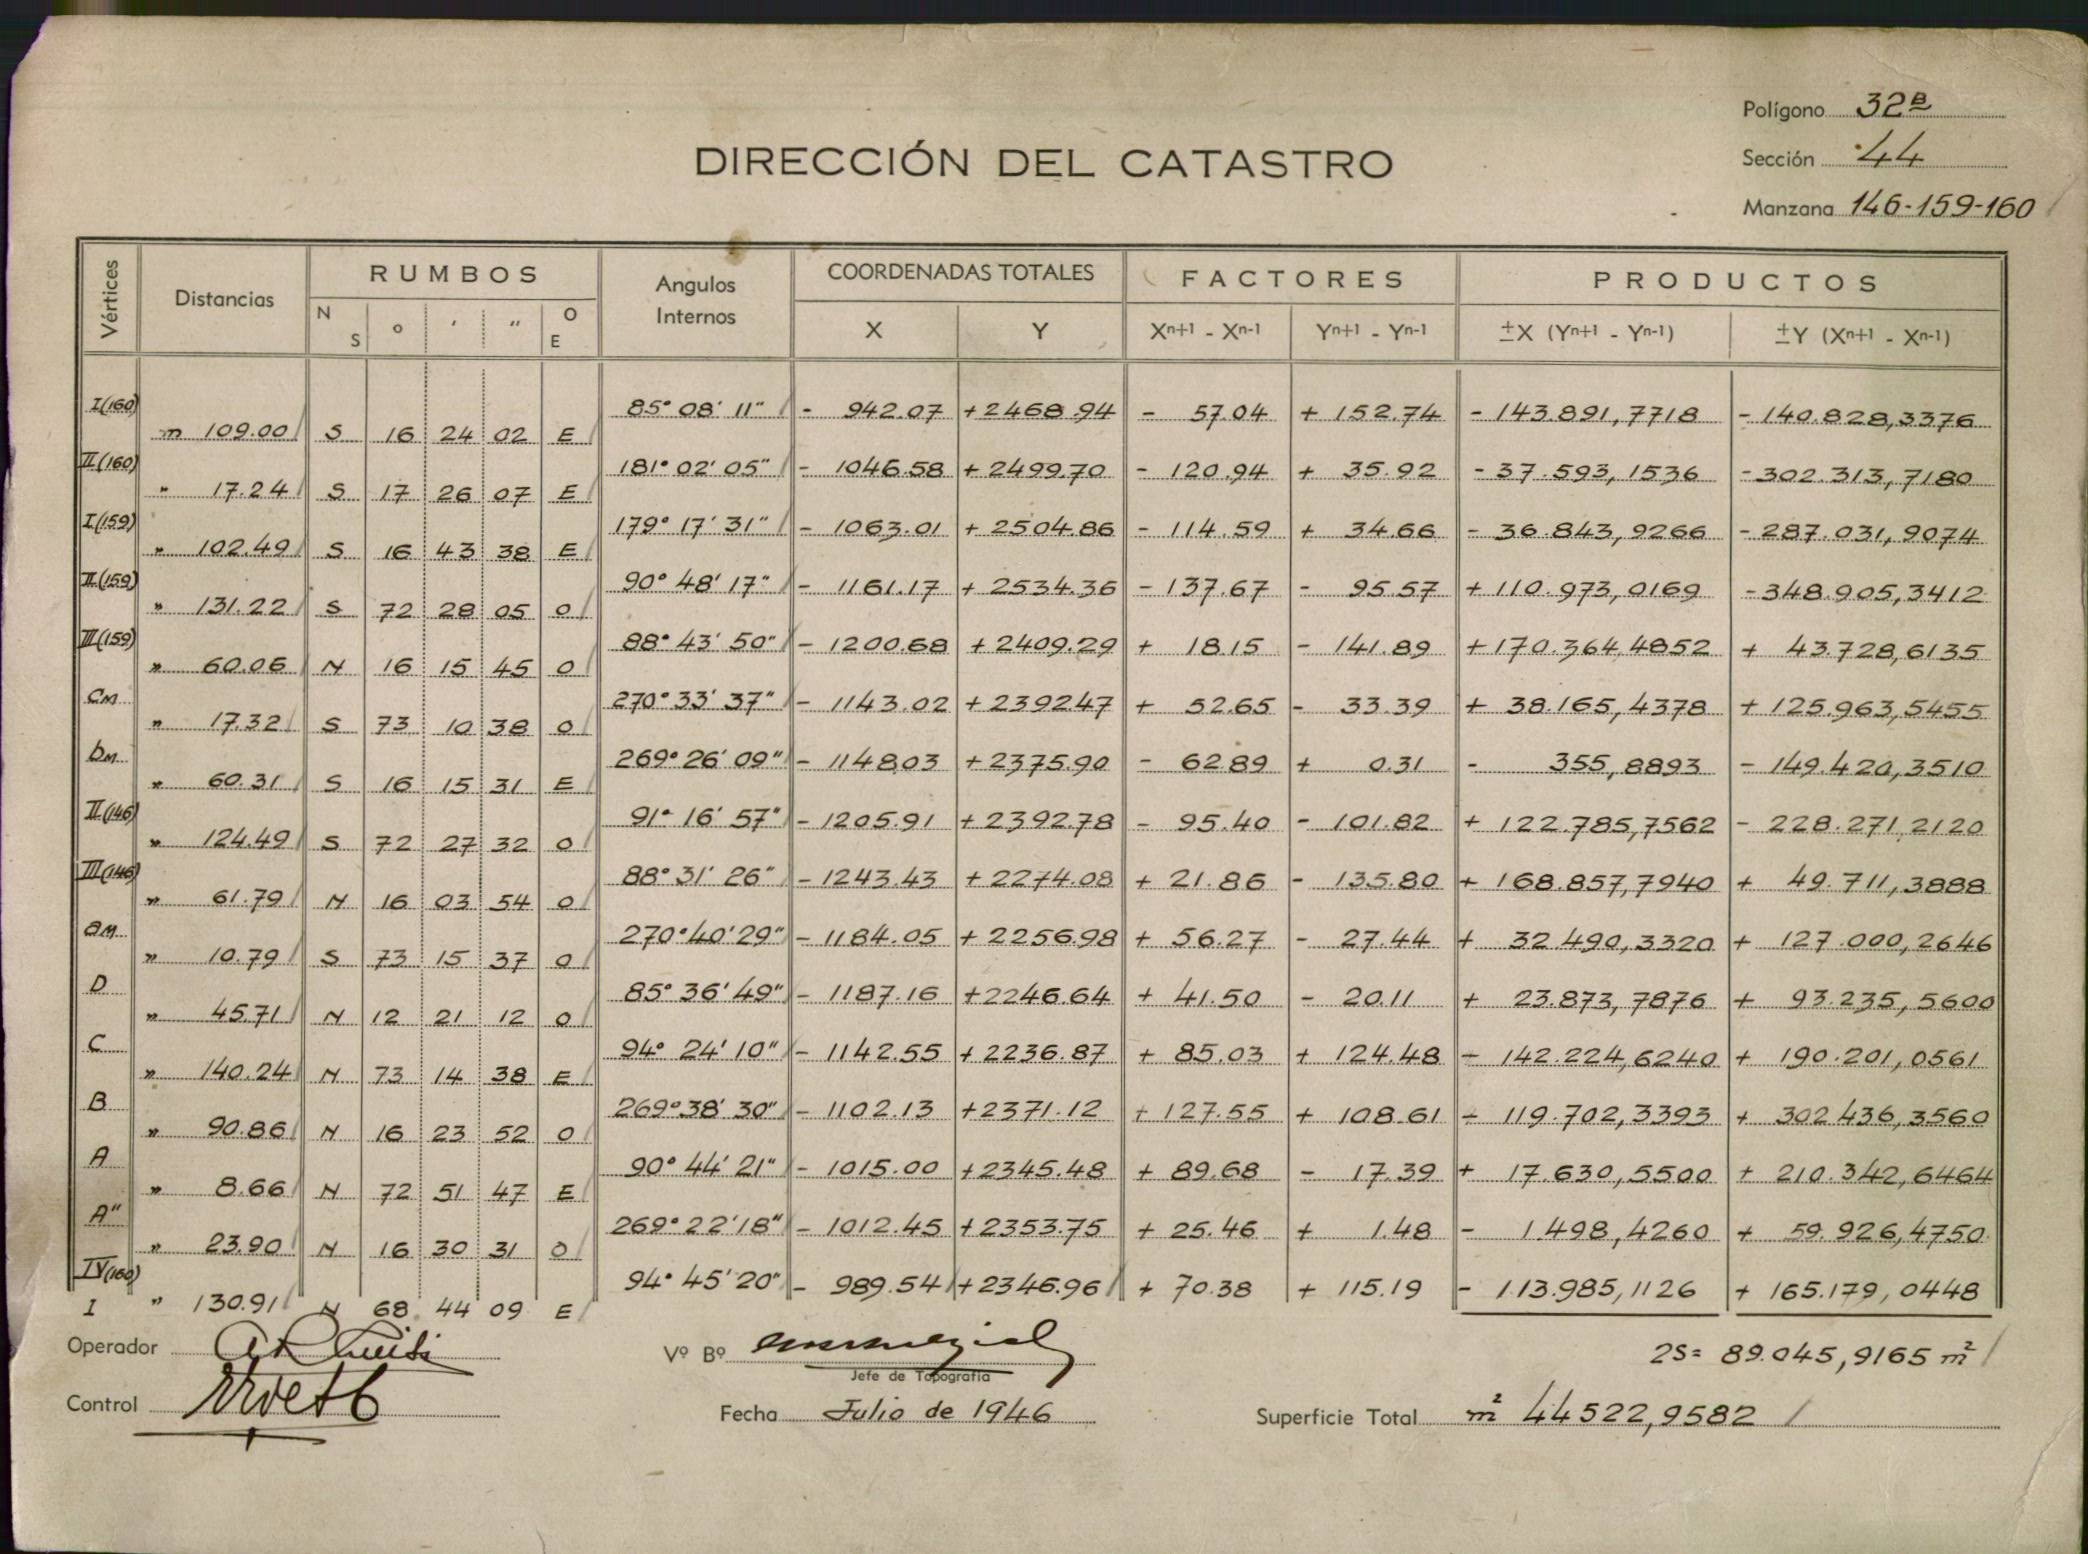 Polígono 32B
Sección 44
Manzana 146-159-160
DIRECCIÓN DEL CATASTRO
Vértices Distancias RUMBOS Angulos Internos COORDENADAS TOTALES FACTORES PRODUCTOS
N S o ′ ″ O E X Y Xn+1 - Xn-1 Yn+1 - Yn-1 ±X (Yn+1 - Yn-1) ±Y (Xn+1 - Xn-1)
I(160) 85° 08' 11" - 942.07 +2468.94 - 57.04 + 152.74 - 143.891,7718 - 140.828,3376
m 109.00 S 16 24 02 E
II(160) 181° 02' 05" - 1046.58 +2499.70 - 120.94 + 35.92 - 37.593,1536 - 302.313,7180
" 17.24 S 17 26 07 E
I(159) 179° 17' 31" - 1063.01 + 2504.86 - 114.59 + 34.66 - 36.843,9266 - 287.031,9074
" 102.49 S 16 43 38 E
II(159) 90° 48' 17" - 1161.17 + 2534.36 - 137.67 - 95.57 + 110.973,0169 - 348.905,3412
" 131.22 S 72 28 05 O
III(159) 88° 43' 50" - 1200.68 + 2409.29 + 18.15 - 141.89 + 170.364,4852 + 43.728,6135
" 60.06 N 16 15 45 O
CM 270° 33' 37" - 1143.02 + 2392.47 + 52.65 - 33.39 + 38.165,4378 + 125.963,5455
" 17.32 S 73 10 38 O
bM 269° 26' 09" - 1148.03 + 2375.90 - 62.89 + 0.31 - 355,8893 - 149.420,3510
" 60.31 S 16 15 31 E
II(146) 91° 16' 57" - 1205.91 + 2392.78 - 95.40 - 101.82 + 122.785,7562 - 228.271,2120
" 124.49 S 72 27 32 O
III(146) 88° 31' 26" - 1243.43 + 2274.08 + 21.86 - 135.80 + 168.857,7940 + 49.711,3888
" 61.79 N 16 03 54 O
aM 270° 40' 29" - 1184.05 + 2256.98 + 56.27 - 27.44 + 32.490,3320 + 127.000,2646
" 10.79 S 73 15 37 O
D 85° 36' 49" - 1187.16 +2246.64 + 41.50 - 20.11 + 23.873,7876 + 93.235,5600
" 45.71 N 12 21 12 O
C 94° 24' 10" - 1142.55 + 2236.87 + 85.03 + 124.48 - 142.224,6240 + 190.201,0561
" 140.24 N 73 14 38 E
B 269° 38' 30" - 1102.13 +2371.12 + 127.55 + 108.61 - 119.702,3393 + 302.436,3560
" 90.86 N 16 23 52 O
A 90° 44' 21" - 1015.00 +2345.48 + 89.68 - 17.39 + 17.630,5500 + 210.342,6464
" 8.66 N 72 51 47 E
A" 269° 22' 18" - 1012.45 +2353.75 + 25.46 + 1.48 - 1.498,4260 + 59.926,4750
" 23.90 N 16 30 31 O
IV(160) 94° 45' 20" - 989.54 +2346.96 + 70.38 + 115.19 - 113.985,1126 + 165.179,0448
I " 130.91 N 68 44 09 E
2S= 89.045,9165 m²
Operador
Vº Bº
Jefe de Topografía
Control
Fecha Julio de 1946
Superficie Total m² 44522,9582